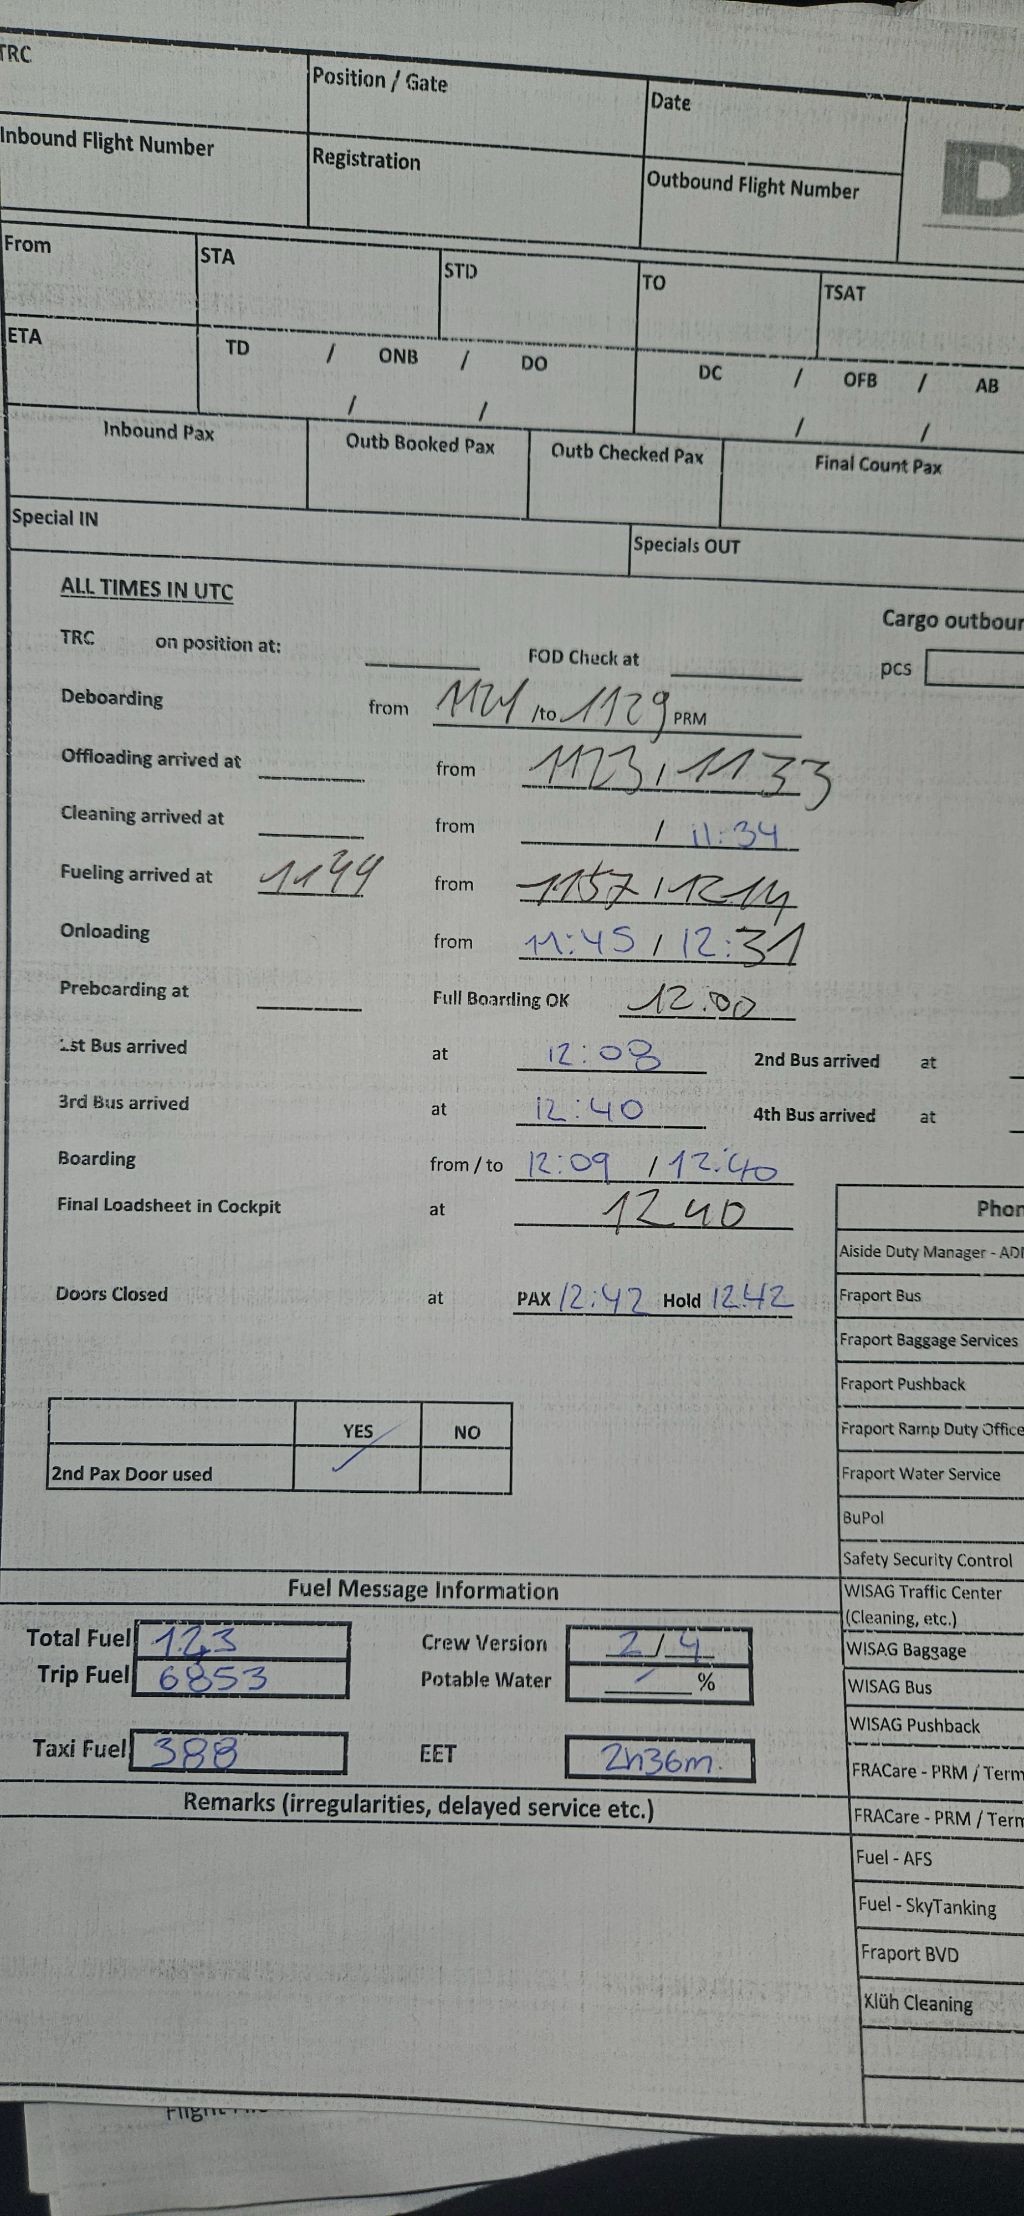 TRC Position / Gate Date
Inbound Flight Number Registration Outbound Flight Number
D
From STA STD TO TSAT
ETA TD / ONB / DO DC / OFB / AB
/ / / /
Inbound Pax Outb Booked Pax Outb Checked Pax Final Count Pax
Special IN Specials OUT
ALL TIMES IN UTC
Cargo outbour
TRC on position at: FOD Check at pcs
Deboarding from 1121 /to 1129 PRM
Offloading arrived at from 1123 / 1133
Cleaning arrived at from / 11:34
Fueling arrived at 1144 from 1157 / 1214
Onloading from 11:45 / 12:31
Preboarding at Full Boarding OK 12:00
1st Bus arrived at 12:08 2nd Bus arrived at
3rd Bus arrived at 12:40 4th Bus arrived at
Boarding from / to 12:09 / 12:40
Final Loadsheet in Cockpit at 1240
Doors Closed at PAX 12:42 Hold 12.42
YES NO
2nd Pax Door used ✓
Phon
Aiside Duty Manager - ADM
Fraport Bus
Fraport Baggage Services
Fraport Pushback
Fraport Ramp Duty Office
Fraport Water Service
BuPol
Safety Security Control
WISAG Traffic Center
(Cleaning, etc.)
WISAG Baggage
WISAG Bus
WISAG Pushback
FRACare - PRM / Term
FRACare - PRM / Term
Fuel - AFS
Fuel - SkyTanking
Fraport BVD
Klüh Cleaning
Fuel Message Information
Total Fuel 12,3 Crew Version 2 / 4
Trip Fuel 6853 Potable Water %
Taxi Fuel 388 EET 2h36m.
Remarks (irregularities, delayed service etc.)